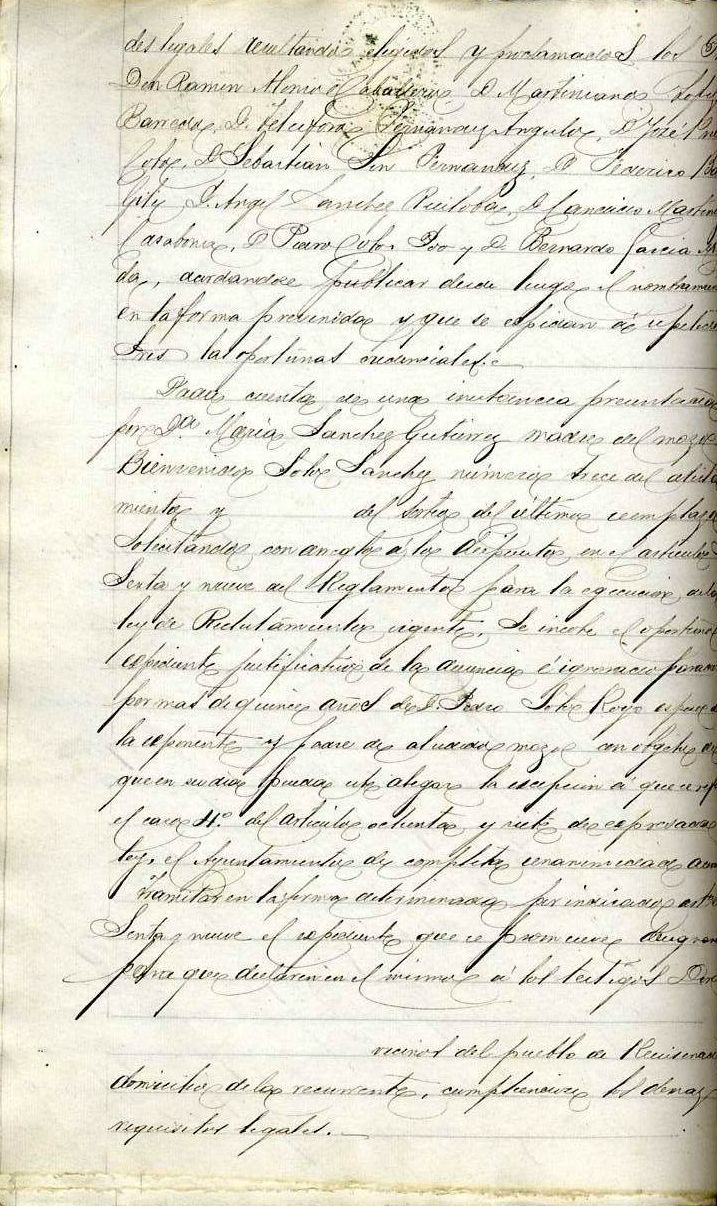 des legales resultando elegidos y proclamados los
Don Ramon Alonso Caballero, D. Martiniano
Barreda, D. Telesforo Fernandez Angulo, D. José
Coto, D. Sebastián Fernandez, D. Federico
Gily D. Angel Sanchez Ruiloba, D. Cancucio Martin
Casabona, D. Pedro Coto Poo y D. Bernardo Garcia
da, acordandose publicar desde luego el nombramien
en la forma prevenida y que se espidan á repetidos
tres las oportunas credenciales.
Dada cuenta de una instancia presentada
por Dª Maria Sanchez Gutierrez madre del mozo
Bienvenido Soto Sanchez número trece del alista
miento y del sorteo del último reemplazo
solicitando con arreglo á lo dispuesto en el articulo
senta y nueve del Reglamento para la egecucion de la
ley de Reclutamiento vigente, se incohe el oportuno
espediente justificativo de la ausencia é ignorado parade
por mas de quince años de D. Pedro Soto Royo esposo de
la esponente y padre de aludido mozo con obgeto de
que en su dia pueda este alegar la escepcion á que se refi
el caso 4º del articulo ochenta y siete de espresada
ley, el Ayuntamiento de completa unanimidad acor
tramitar en la forma determinada por indicado artº
senta y nueve el espediente que se promueve
para que declaren en el mismo á los testigos Don
vecinos del pueblo de
domicilio de la recurrente, cumpliendose los demas
requisitos legales.